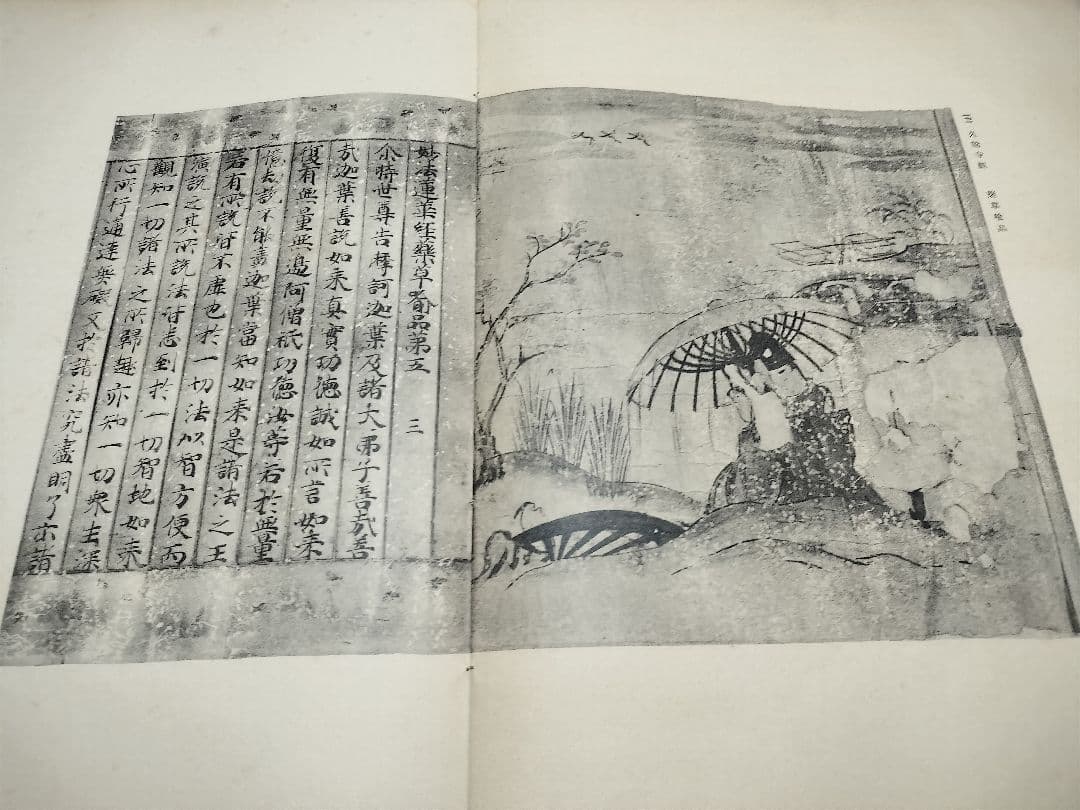 妙法蓮華経藥草喩品第五 三
尒時世尊告摩訶迦葉及諸大弟子善哉善
哉迦葉善説如来真實功徳誠如所言如来
復有無量無邊阿僧祇功徳汝等若於無量
億劫説不能盡迦葉當知如来是諸法之王
若有所説皆不虚也於一切法以智方便而
演説之其所説法皆悉到於一切智地如来
觀知一切諸法之所歸趣亦知一切衆生深
心所行通達無礙又於諸法究盡明了示諸
藥草喩品